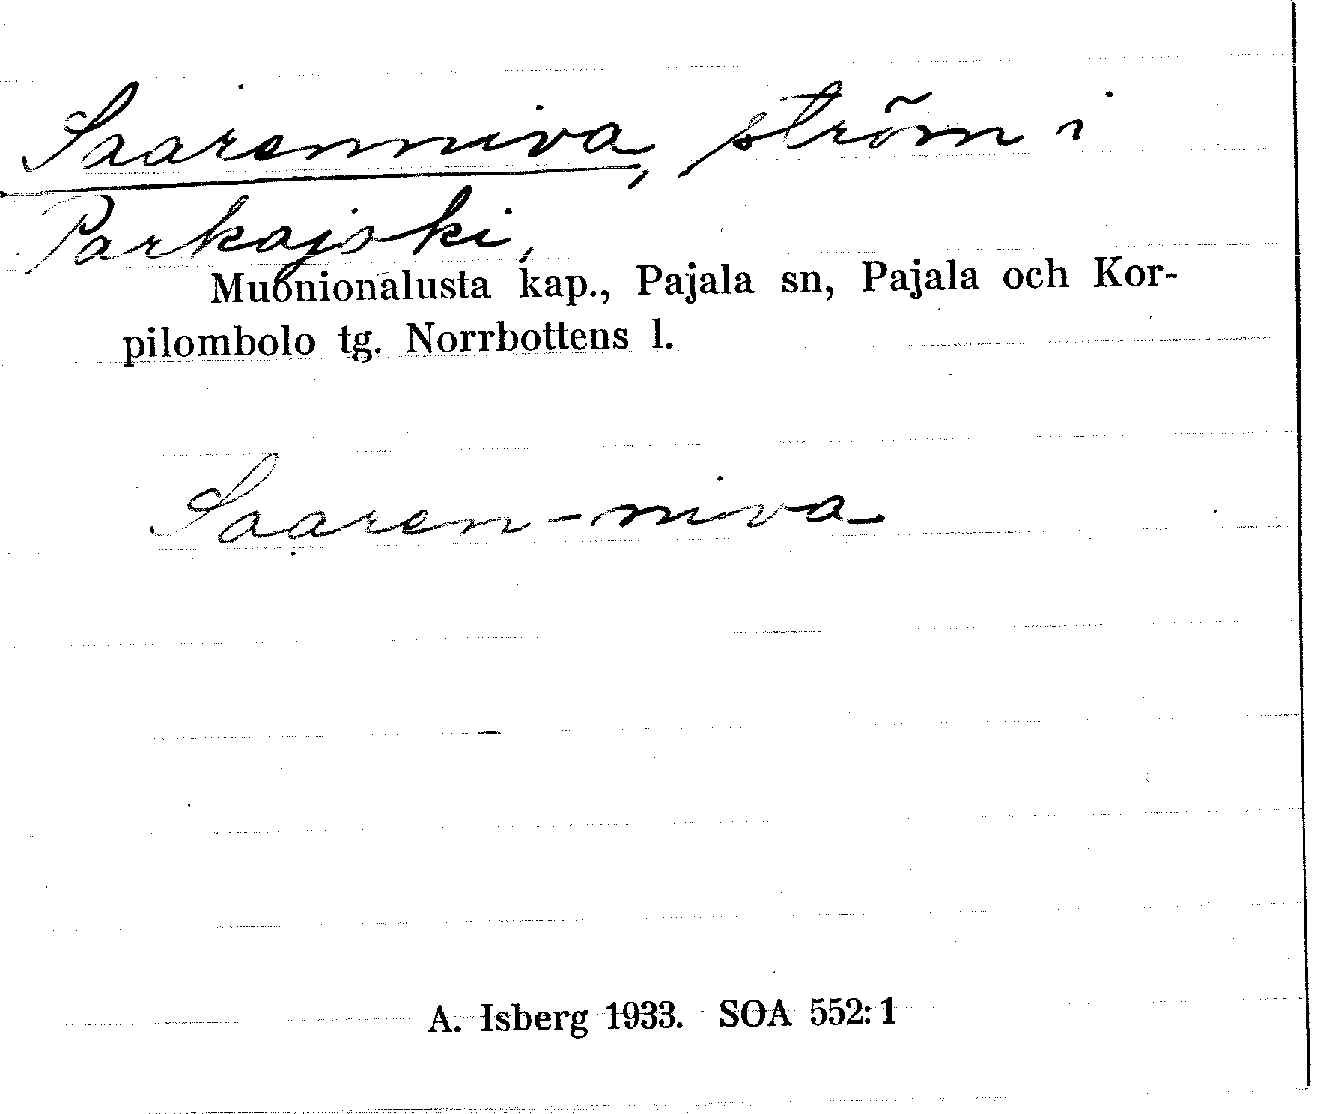 Saarenniva, ström i
Parkajoki,
Muonionalusta kap., Pajala sn, Pajala och Kor-
pilombolo tg. Norrbottens l.
Saaren-niva
A. Isberg 1933. SOA 552:1